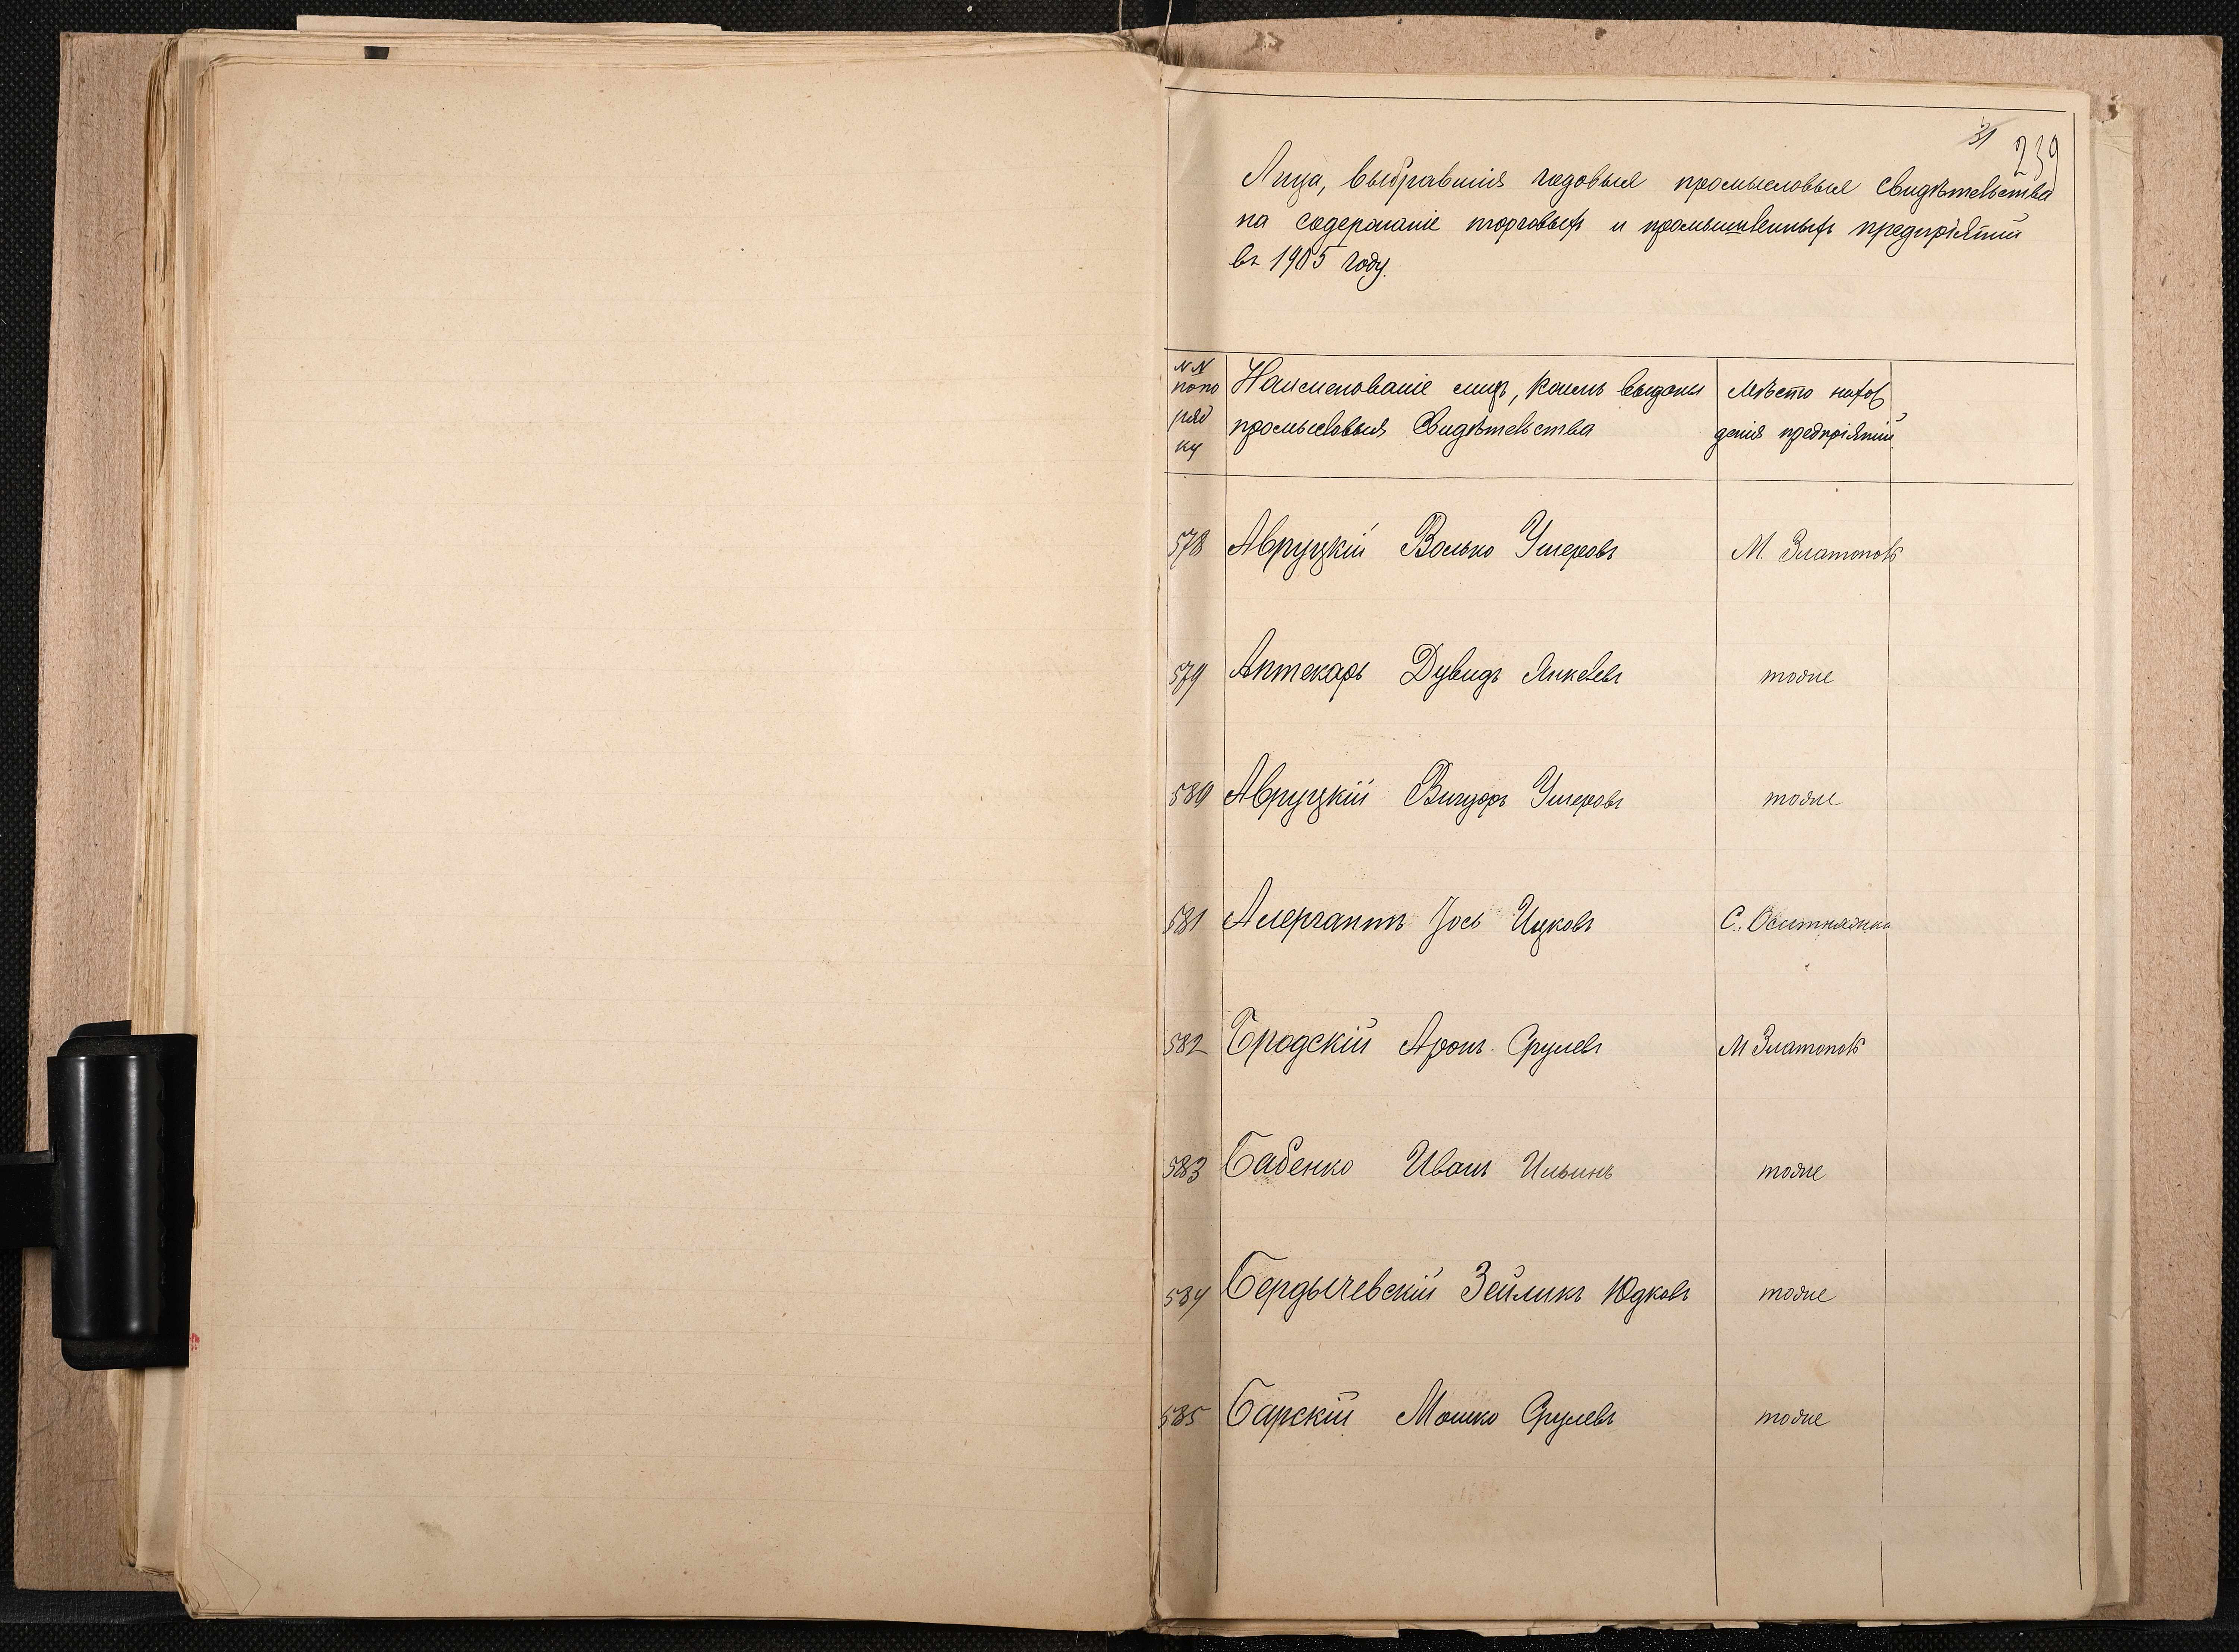 31
239
Лица, выбравшія годовыя промысловыя свидѣтельства
на содержаніе торговыхъ и промышленныхъ предпріятій
въ 1905 году.
NN по по ряд ку
Наименованіе лицъ, коимъ выданы
промысловыя Свидѣтельства
Мѣсто нахож
денія предпріятій
578 Авруцкій Волько Ушеровъ М. Златополь
579 Аптекарь Дувидъ Янкелевъ тоже
580 Авруцкій Вигдоръ Ушеровъ тоже
581 Алергантъ Іось Ицковъ С. Оситняжка
582 Бродскій Аронъ Срулевъ М Златополь
583 Бабенко Иванъ Ильинъ тоже
584 Бердычевскій Зейликъ Юдковъ тоже
585 Барскій Мошко Срулевъ тоже